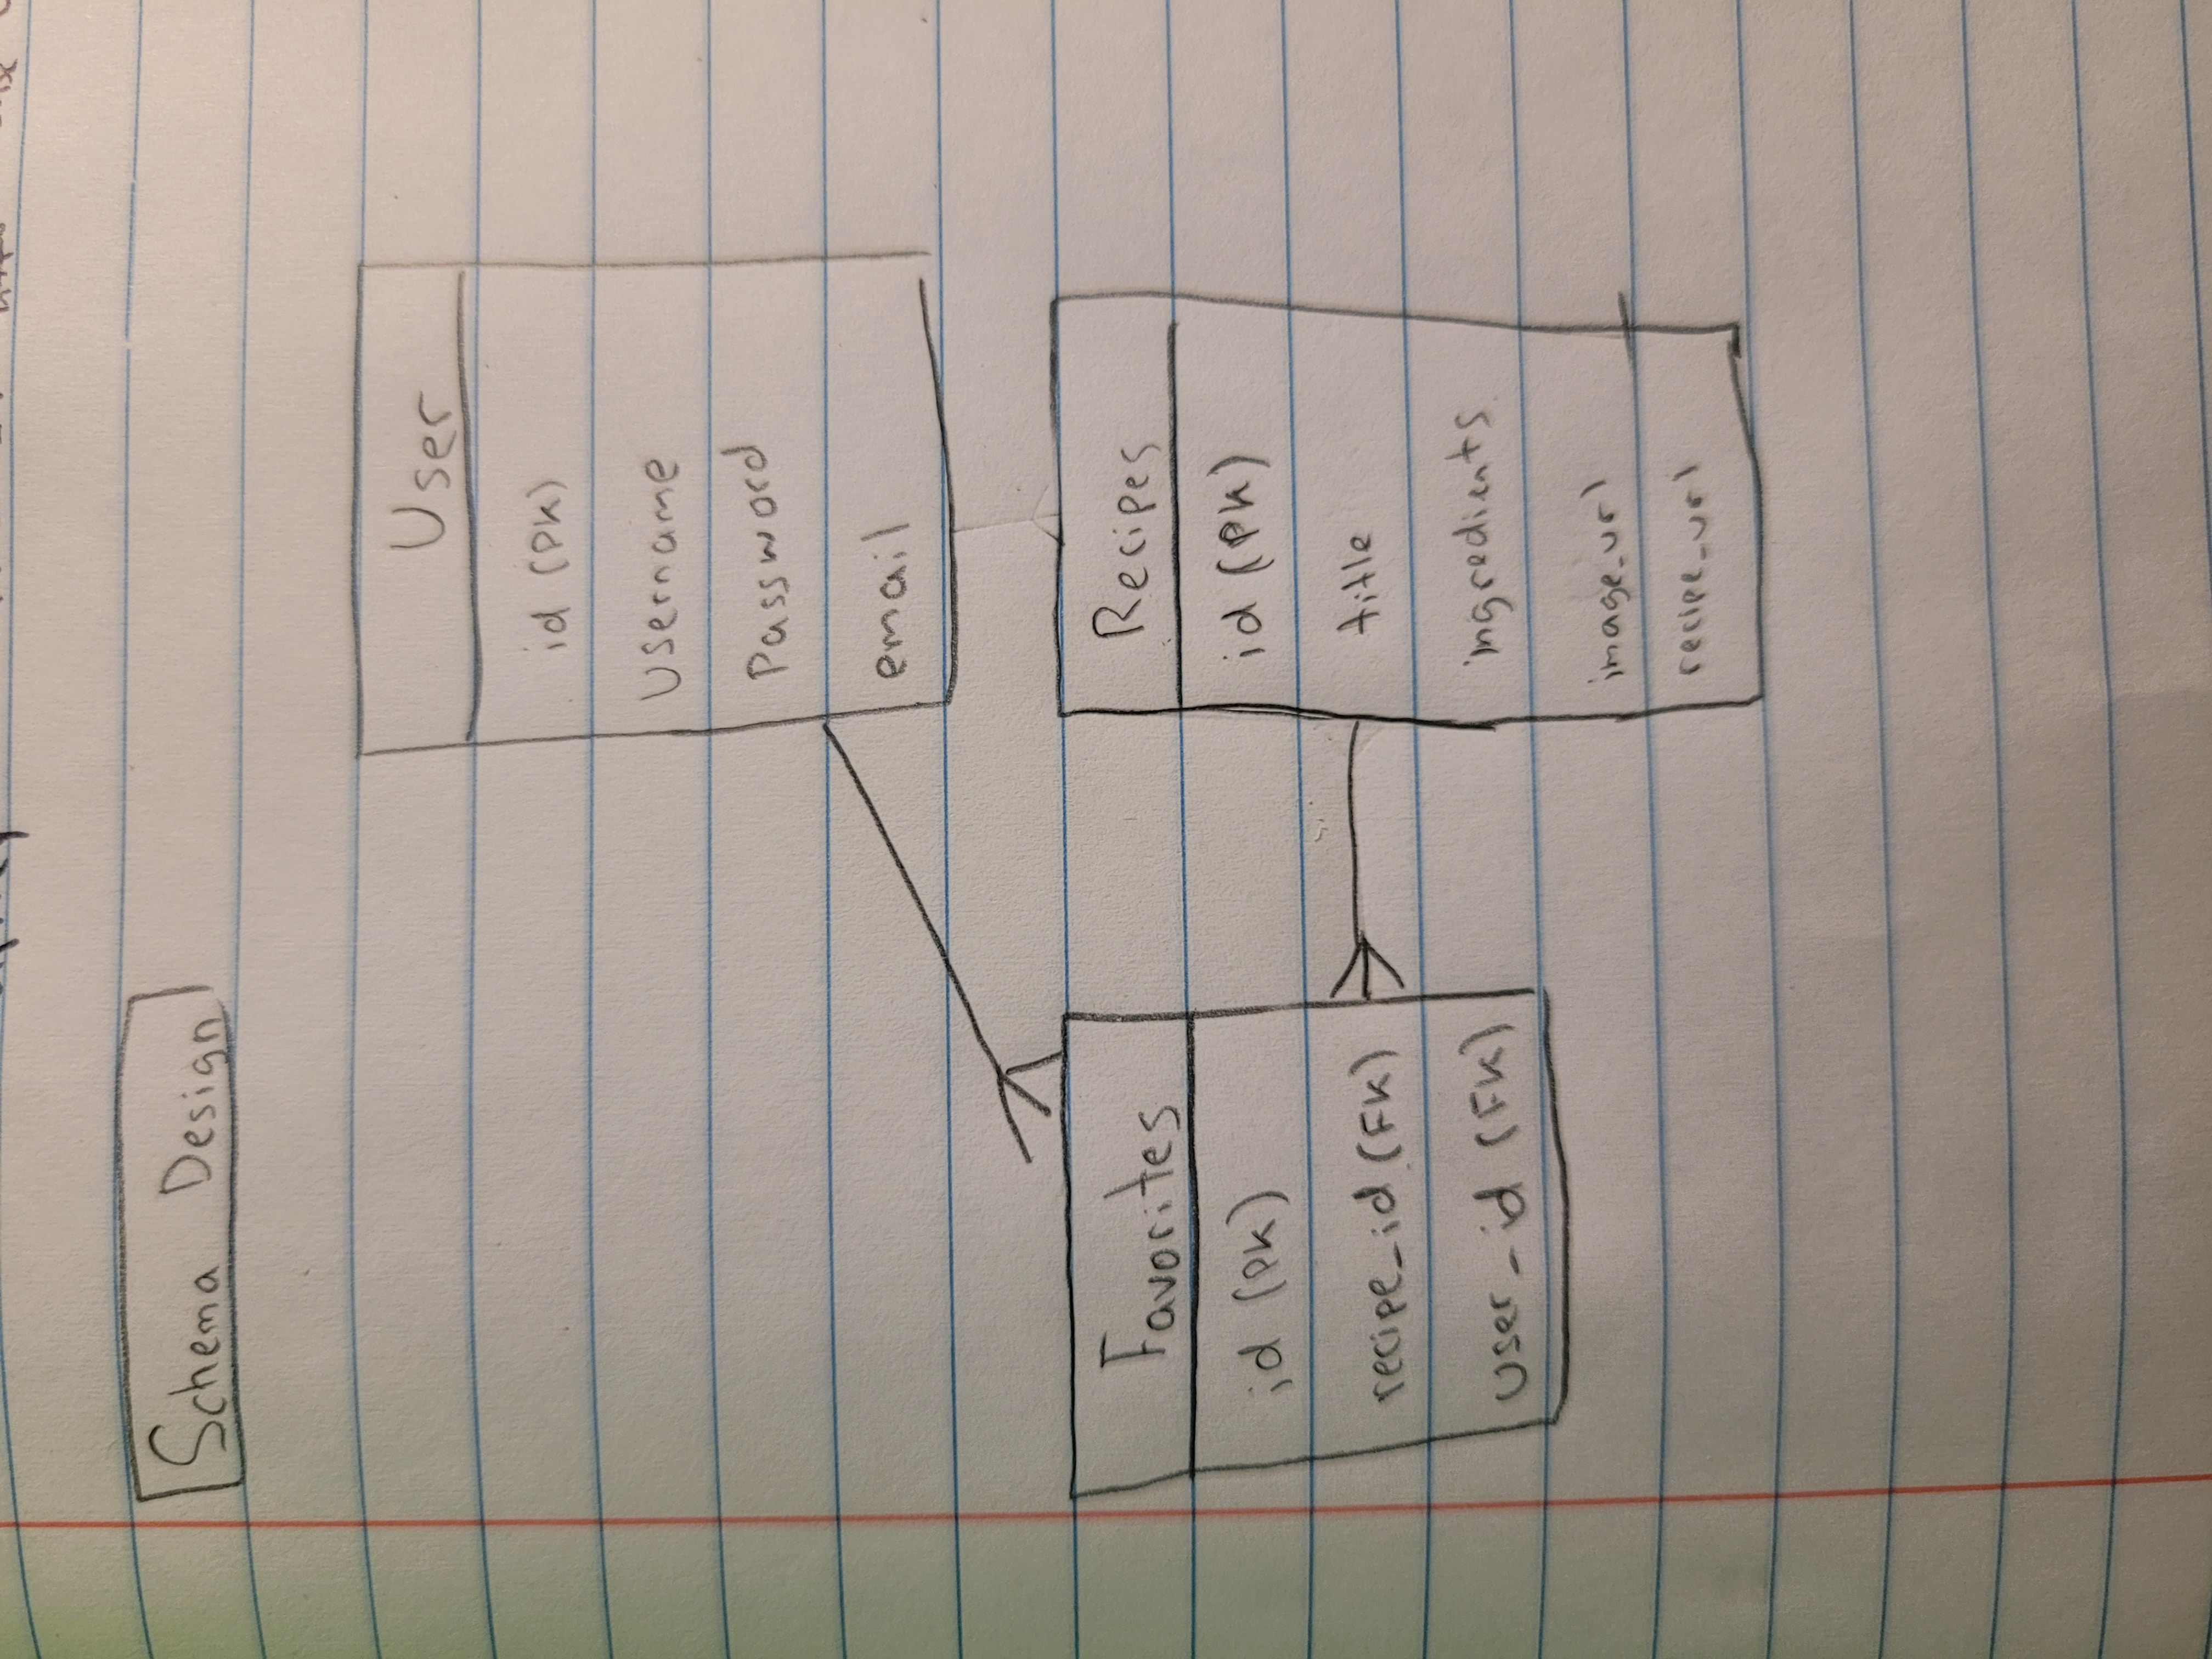 Schema Design
User
id (PK)
Username
Password
email
Favorites
id (PK)
recipe_id (FK)
user_id (FK)
Recipes
id (PK)
title
ingredients
image_url
recipe_url